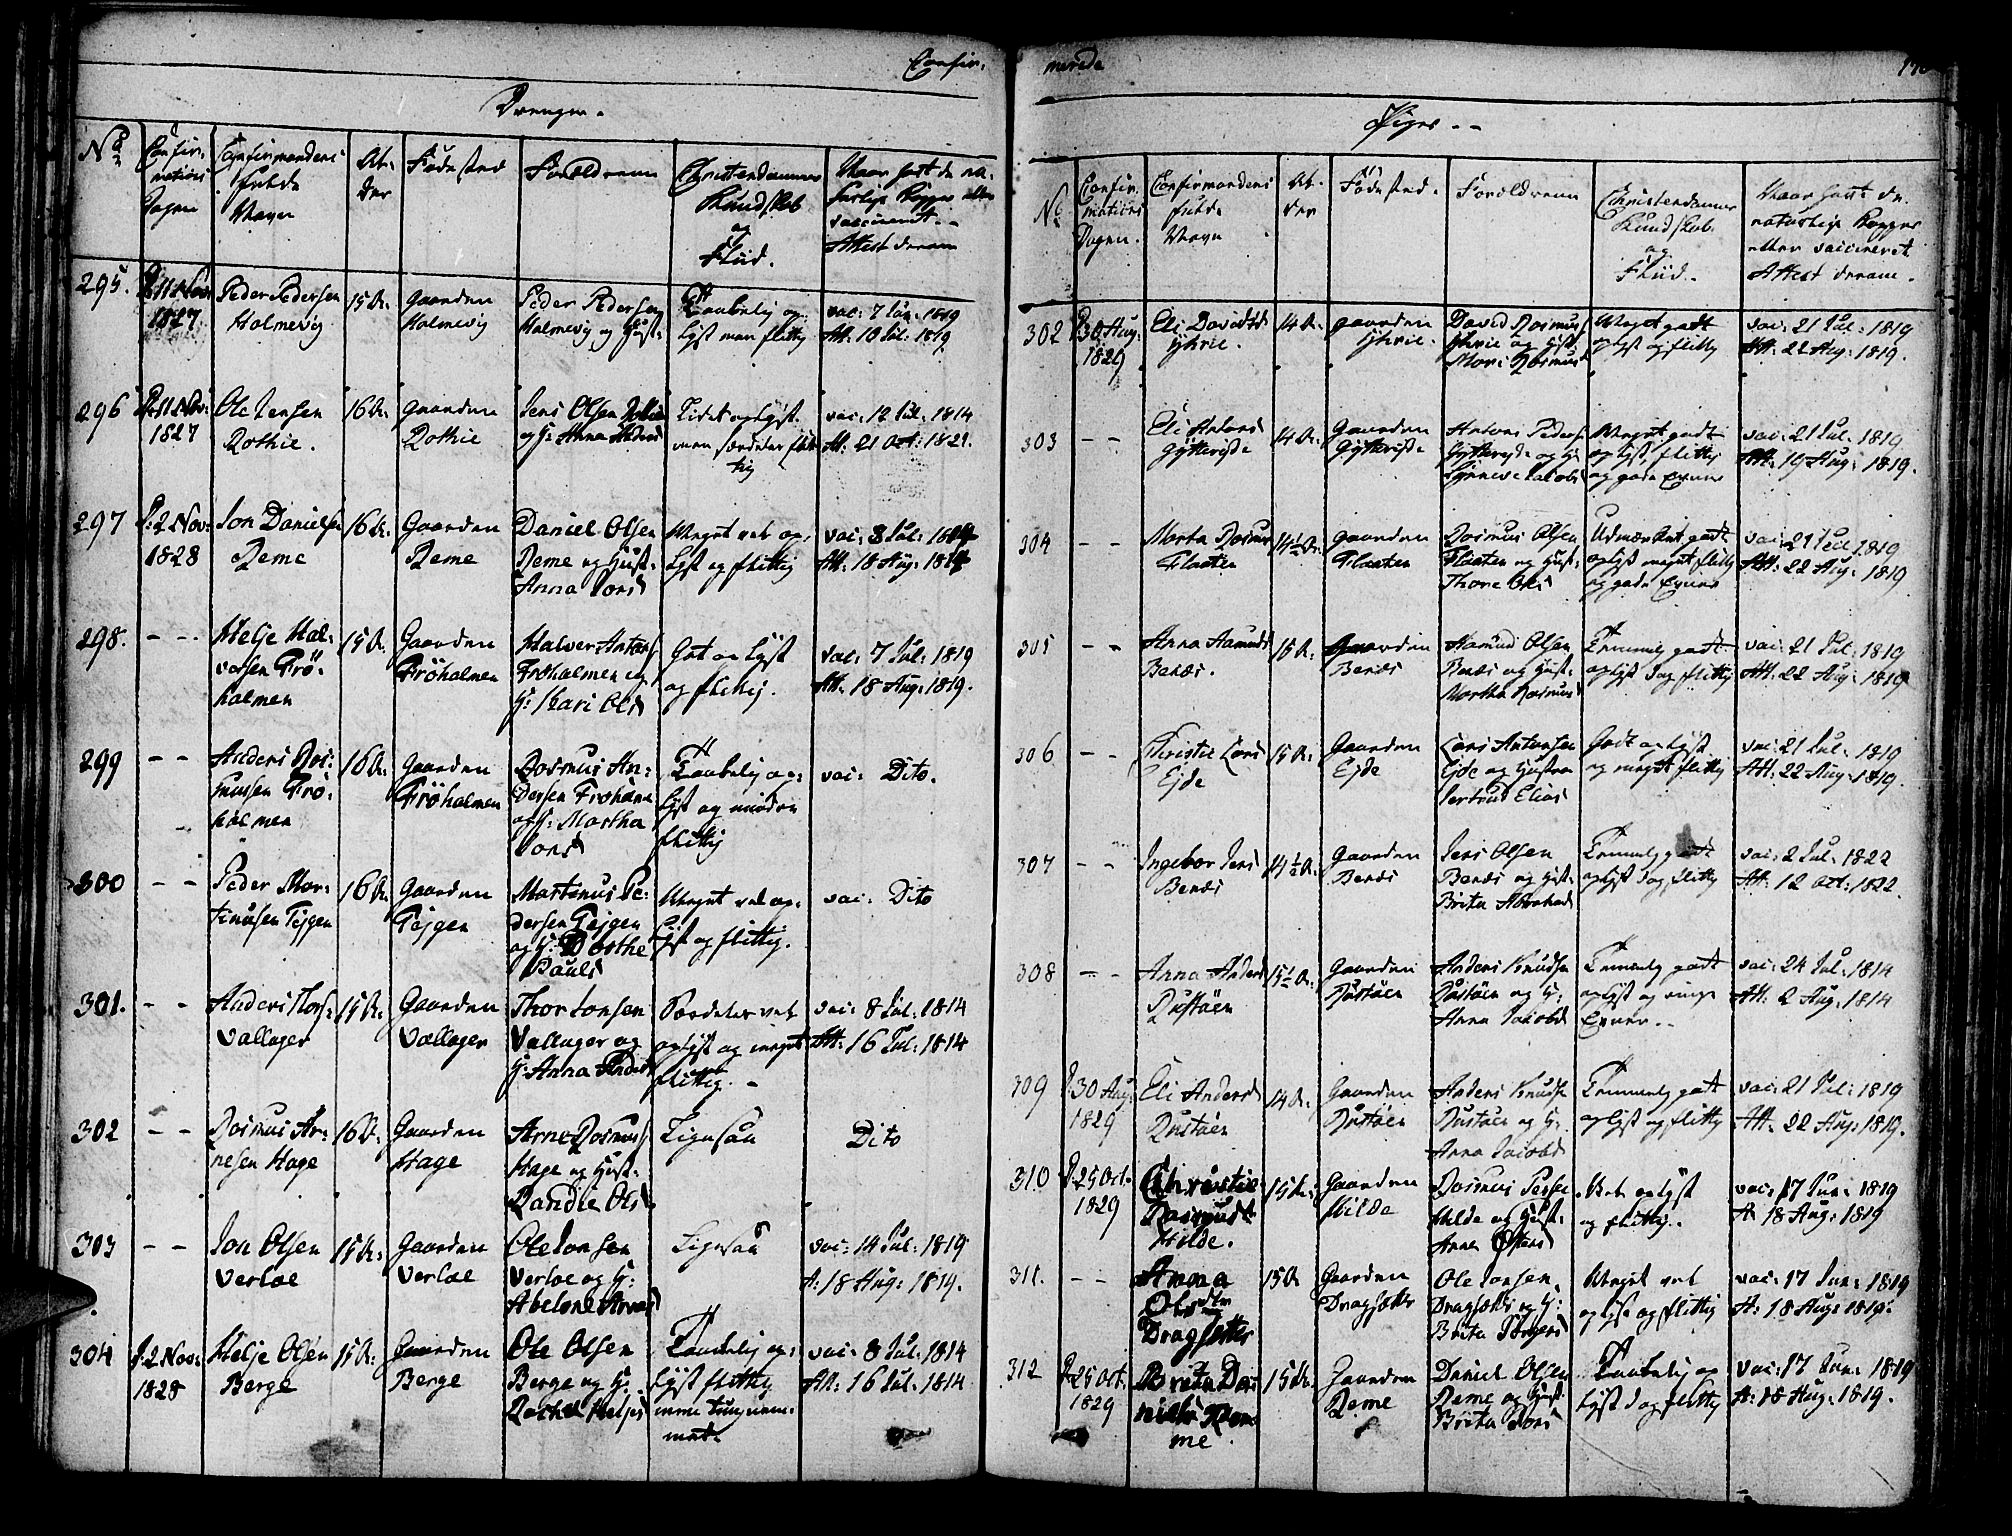 Confir-
Drenger.
No
Confir-
mations
Dagen
Confirmandens
fulde
Navn
Al-
der
Fødested
Forældrene
Christendommens
Kundskab
og
Fliid.
Naar havt de na-
turlige Kopper eller
vaccineret.
Attest derom
295.
11 Nov:
1827
Peder Pedersen
Holmevig
15 A.
Gaarden
Holmevig
Peder Pedersen
Holmevig og Hust:
Taalelig op-
lyst men flittig
vac: 7 Jun: 1819
Att: 18 Jul: 1819
296
11 Nov:
1827
Ole Jensen
Rothie.
16 A.
Gaarden
Rothie
Jens Olsen Rothie
og H: Anna
Lidet oplyst
men særdeles flit-
tig
vac: 12 Jul: 1814
At: 21 Oct: 1821.
297
2 Nov:
1828
Jon Danielsen
Reme
16 A.
Gaarden
Reme
Daniel Olsen
Reme og Hust:
Anna Jons
Meget vel op-
lyst og flittig
vac: 8 Jul: 1814
Att: 18 Aug: 1814
298.
- -
Helje Hal-
vorsen Frö-
holmen
15 A.
Gaarden
Fröholmen
Halvor Antons
Fröholmen og
H: Kari Ols
Got oplyst
og flittig.
vac: 7 Jul: 1819
Att: 18 Aug: 1819.
299
- -
Anders Ras-
mussen Frö-
holmen
16 A.
Gaarden
Fröholmen
Rasmus An-
dersen Froholmen
og H: Martha
Jons
Taalelig op-
lyst og mindre
flittig
vac: Dito.
300
- -
Peder Mar-
tinusen Tejgen
16 A.
Gaarden
Tejgen
Martinus Pe-
dersen Tejgen
og H: Dorthe
Pauls
Meget vel op-
lyst og flittig.
vac: Dito
301.
- -
Anders Thors:
Vallager
15 A.
Gaarden
Vallager
Thor Jonsen
Vallager og
H: Anna Anders
Særdeles vel
oplyst og meget
flittig.
vac: 8 Jul: 1814
Att: 16 Jul: 1814
302
- -
Rasmus Ar-
nesen Hage
16 A.
Gaarden
Hage
Arne Rasmus
Hage og Hust:
Randie Ols
Ligesaa
Dito
303
- -
Jon Olsen
Verloe
15 A.
Gaarden
Verloe
Ole Jonsen
Verloe og H:
Abelone Arnes
Ligesaa
vac: 14 Jul: 1819
A: 18 Aug: 1819.
304
2 Nov:
1828
Helje Olsen
Berge
15 A.
Gaarden
Berge
Ole Olsen
Berge og H:
Rachel Heljes
Taalelig op-
lyst flittig
men tungnem-
met.
vac: 8 Jul: 1814
Att: 16 Jul: 1814
merede
Piger.
No
Confir-
mations
Dagen.
Confirmandens
fulde
Navn
Al-
der
Fødested.
Forældrene
Christendommens
Kundskab.
og
Fliid.
Naar havt de
naturlige Kopper
eller vaccineret
Attest derom.
302
30 Aug:
1829
Eli Davids
Ytrie.
14 A.
Gaarden
Ytrie.
David Rasmus
Ytrie og Hust:
Mari Rasmus
Meget godt
oplyst og flittig
vac: 21 Jul: 1819
Att: 22 Aug: 1819.
303
- -
Eli Antons
Gytterisde
14 A.
Gaarden
Gytterisde
Antons Peders
Gytterisde og H:
Synneve Jacobs
Meget godt
oplyst, flittig
og gode Evner
vac: 21 Jul: 1819
Att: 19 Aug: 1819.
304
- -
Marta Rasmus
Flaaten
14½ A.
Gaarden
Flaaten
Rasmus Olsen
Flaaten og Hust:
Thore Ols
Udmærket godt
oplyst meget flittig
og gode Evner
vac: 21 Jul 1819
Att: 22 Aug: 1819
305
- -
Anna Aamunds
Benæs.
15 A.
Gaarden
Benæs
Aamund Olsen
Benæs og Hust:
Martha Rasmus
Temmelig godt
oplyst og flittig
vac: 21 Jul: 1819
Att: 22 Aug: 1819
306
- -
Christie Lars
Ejde
15 A.
Gaarden
Ejde
Lars Antonsen
Ejde og Hustrue
Jertrud Elias
Godt oplyst
og meget flittig
vac: 21 Jul: 1819
Att: 22 Aug: 1819.
307
- -
Ingebor Jens
Benæs
14½ A.
Gaarden
Benæs
Jens Olsen
Benæs og Hust:
Brita Abraham
Temmelig godt
oplyst og flittig
vac: 2 Jul: 1822
Att: 12 Oct: 1822.
308
- -
Anna Anders
Rustöen
15½ A.
Gaarden
Rustöen
Anders Knuds
Rustöen og H:
Anna Jacobs
Temmelig godt
oplyst og ringe
Evner.
vac: 24 Jul: 1814
Att: 2 Aug: 1814
309
30 Aug:
1829
Eli Anders
Rustöen
14 A.
Gaarden
Rustöen
Anders Knuds
Rustöen og H:
Anna Jacobs
Temmelig godt
oplyst og flittig
vac: 21 Jul: 1819
Att. 22 Aug: 1819.
310
25 Oct.
1829
Christie
Rasmusd
Hilde.
15 A.
Gaarden
Hilde
Rasmus Peders
Hilde og Hust:
Anne
Vel oplyst
og flittig.
vac: 17 Jun: 1819
A: 18 Aug: 1819
311.
- -
Anna
Olsdtr
Dragsetter
15 A
Gaarden
Dragsætter
Ole Jonsen.
Dragsætter og H:
Brita
Meget vel
oplyst og flittig
vac: 17 Jun: 1819
A: 18 Aug: 1819.
312
25 Oct.
1829
Brita Da-
niels Rem
me.
15 A.
Gaarden
Reme
Daniel Olsen
Reme og Hust:
Brita Jons
Taalelig op
lyst og flittig
vac: 17 Jun: 1819
A: 18 Aug: 1819.